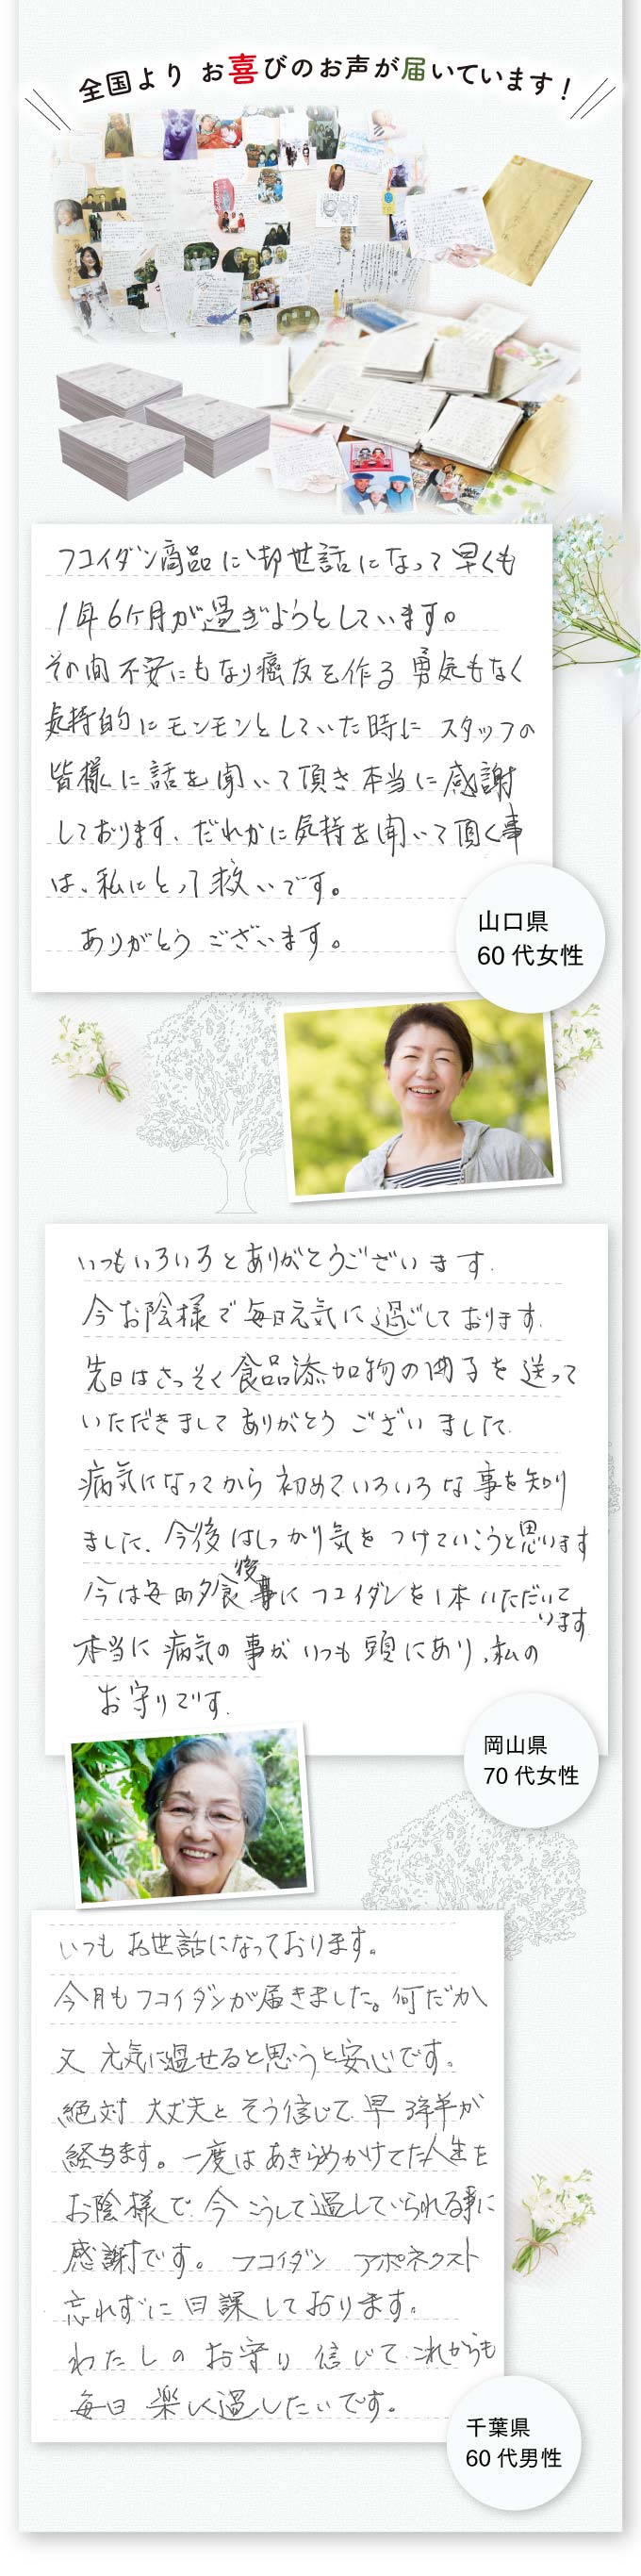 全国より お喜びのお声が届いています！
フコイダン商品に御世話になって早くも
1年6ケ月が過ぎようとしています。
その間不安にもなり癌友を作る勇気もなく
気持的にモンモンとしていた時に スタッフの
皆様に話を聞いて頂き本当に感謝
しております、だれかに気持を聞いて頂く事
は、私にとって救いです。
ありがとうございます。
山口県
60代女性
いつもいろいろとありがとうございます.
今お陰様で毎日元気に過ごしております.
先日はさっそく食品添加物の冊子を送って
いただきましてありがとうございました.
病気になってから初めていろいろな事を知り
ました、今後はしっかり気をつけていこうと思います
今は毎日夕食後にフコイダンを1本いただいて
います
本当に病気の事がいつも頭にあり、私の
お守りです.
岡山県
70代女性
いつもお世話になっております。
今月もフコイダンが届きました。何だか
又 元気に過せると思うと安心です。
絶対 大丈夫とそう信じて 早 3年半が
経ちます。一度はあきらめかけてた人生を
お陰様で 今 こうして過していられる事に
感謝です。フコイダン アポネクスト
忘れずに日課しております。
わたしの お守り 信じて これからも
毎日 楽しく過したいです。
千葉県
60代男性